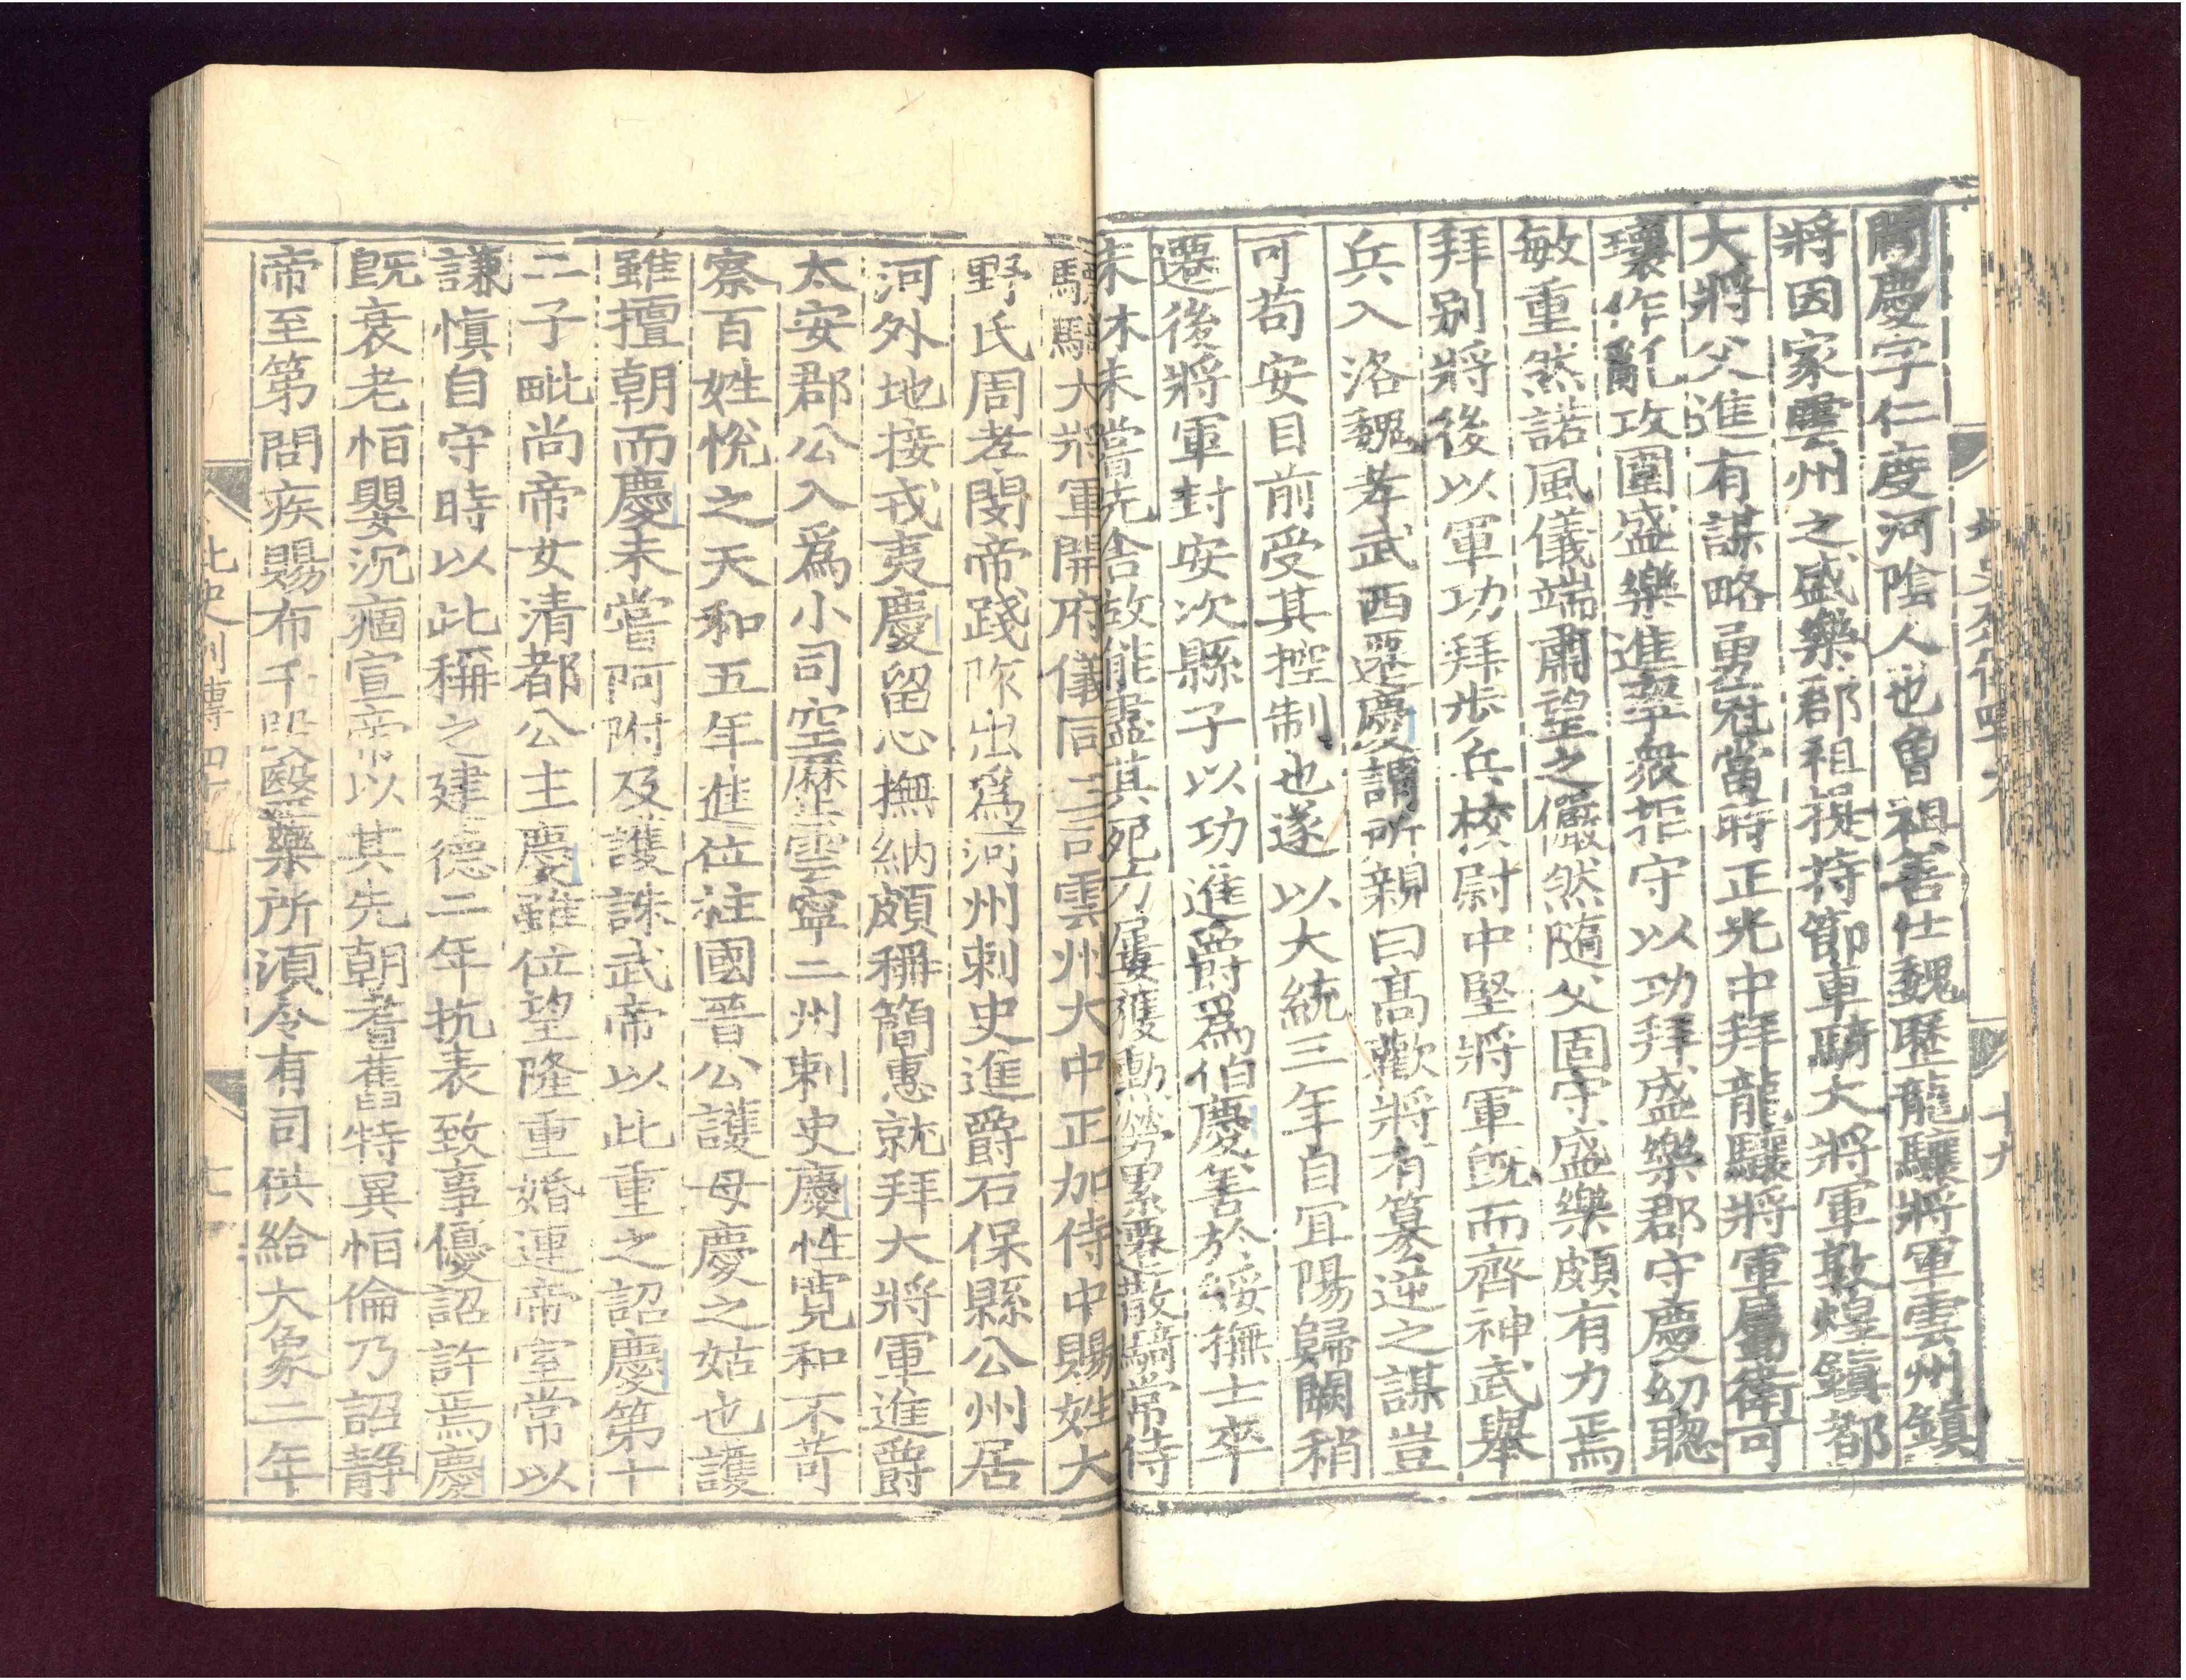 閻慶字仁度河陰人也曾祖善仕魏歷龍驤將軍雲州鎮
將因家雲州之盛樂郡祖提持節車騎大將軍敦煌鎮都
大將父進有謀略勇冠當時正光中拜龍驤將軍屬衛可
瓌作亂攻圍盛樂進率衆拒守以功拜盛樂郡守慶幼聰
敏重然諾風儀端肅望之儼然隨父固守盛樂頗有力焉
拜别將後以軍功拜步兵校尉中堅將軍旣而齊神武舉
兵入洛魏孝武西遷慶謂所親曰高歡將有篡逆之謀豈
可苟安目前受其控制也遂以大統三年自宜陽歸闕稍
遷後將軍封安次縣子以功進爵爲伯慶善於綏撫士卒
未休未嘗先舍故能盡其死力屢獲勳勞累遷散騎常侍
驃騎大將軍開府儀同三司雲州大中正加侍中賜姓大
野氏周孝閔帝踐阼出爲河州刺史進爵石保縣公州居
河外地接戎夷慶留心撫納頗稱簡惠就拜大將軍進爵
太安郡公入爲小司空歷雲寧二州刺史慶性寬和不苛
察百姓悅之天和五年進位柱國晉公護母慶之姑也護
雖擅朝而慶未嘗阿附及護誅武帝以此重之詔慶第十
二子毗尚帝女清都公主慶雖位望隆重婚連帝室常以
謙愼自守時以此稱之建德二年抗表致事優詔許焉慶
旣衰老恒嬰沉痼宣帝以其先朝耆舊特異恒倫乃詔静
帝至第問疾賜布千段醫藥所須令有司供給大象二年
北史列傳四十九